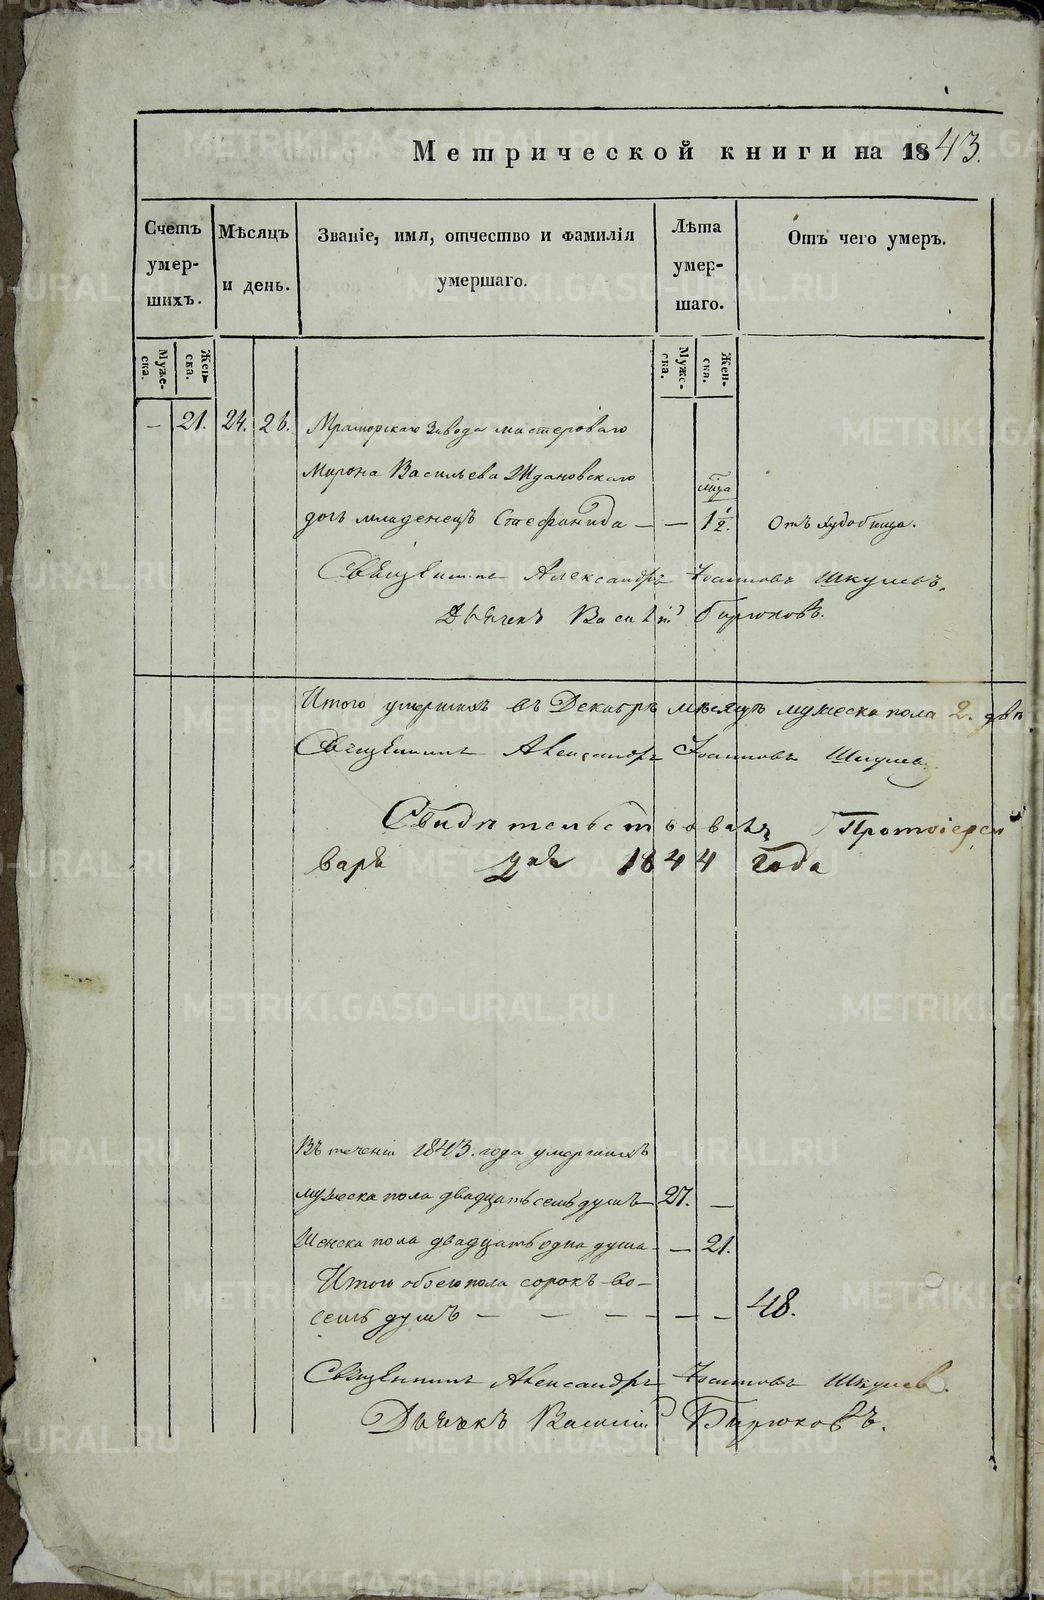 Метрической книги на 1843.
Счетъ умер- шихъ.
Мѣсяцъ и день.
Званіе, имя, отчество и фамилія умершаго.
Лѣта умер- шаго.
Отъ чего умеръ.
Муже- ска.
Жен- ска.
Муже- ска.
Жен- ска.
— 21. 24. 26. Мраморскаго Завода мастероваго
Мирона Васильева Ждановскаго
дочь младенецъ Стефанида — — 1½. Отъ худобища.
Священникъ Александръ Іоанновъ Шкулевъ.
Дьячекъ Василій Бирюковъ.
Итого умершихъ въ Декабрѣ мѣсяцѣ мужеска пола 2. два
Священникъ Александръ Іоанновъ Шкулев
Свидѣтельствовалъ Протоіерей
варя 2 дня 1844 года
Въ теченіи 1843. года умершихъ
мужеска пола двадцать семь душъ 27. —
Женска пола двадцать одна душа — — 21.
Итого обоего пола сорокъ во-
семь душъ — — — — — 48.
Священникъ Александръ Іоанновъ Шкулев.
Дьячекъ Василій Бирюковъ.
METRIKI.GASO-URAL.RU